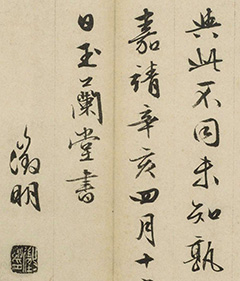 與此不同未知孰
嘉靖辛亥四月十
日玉蘭堂書
徵明